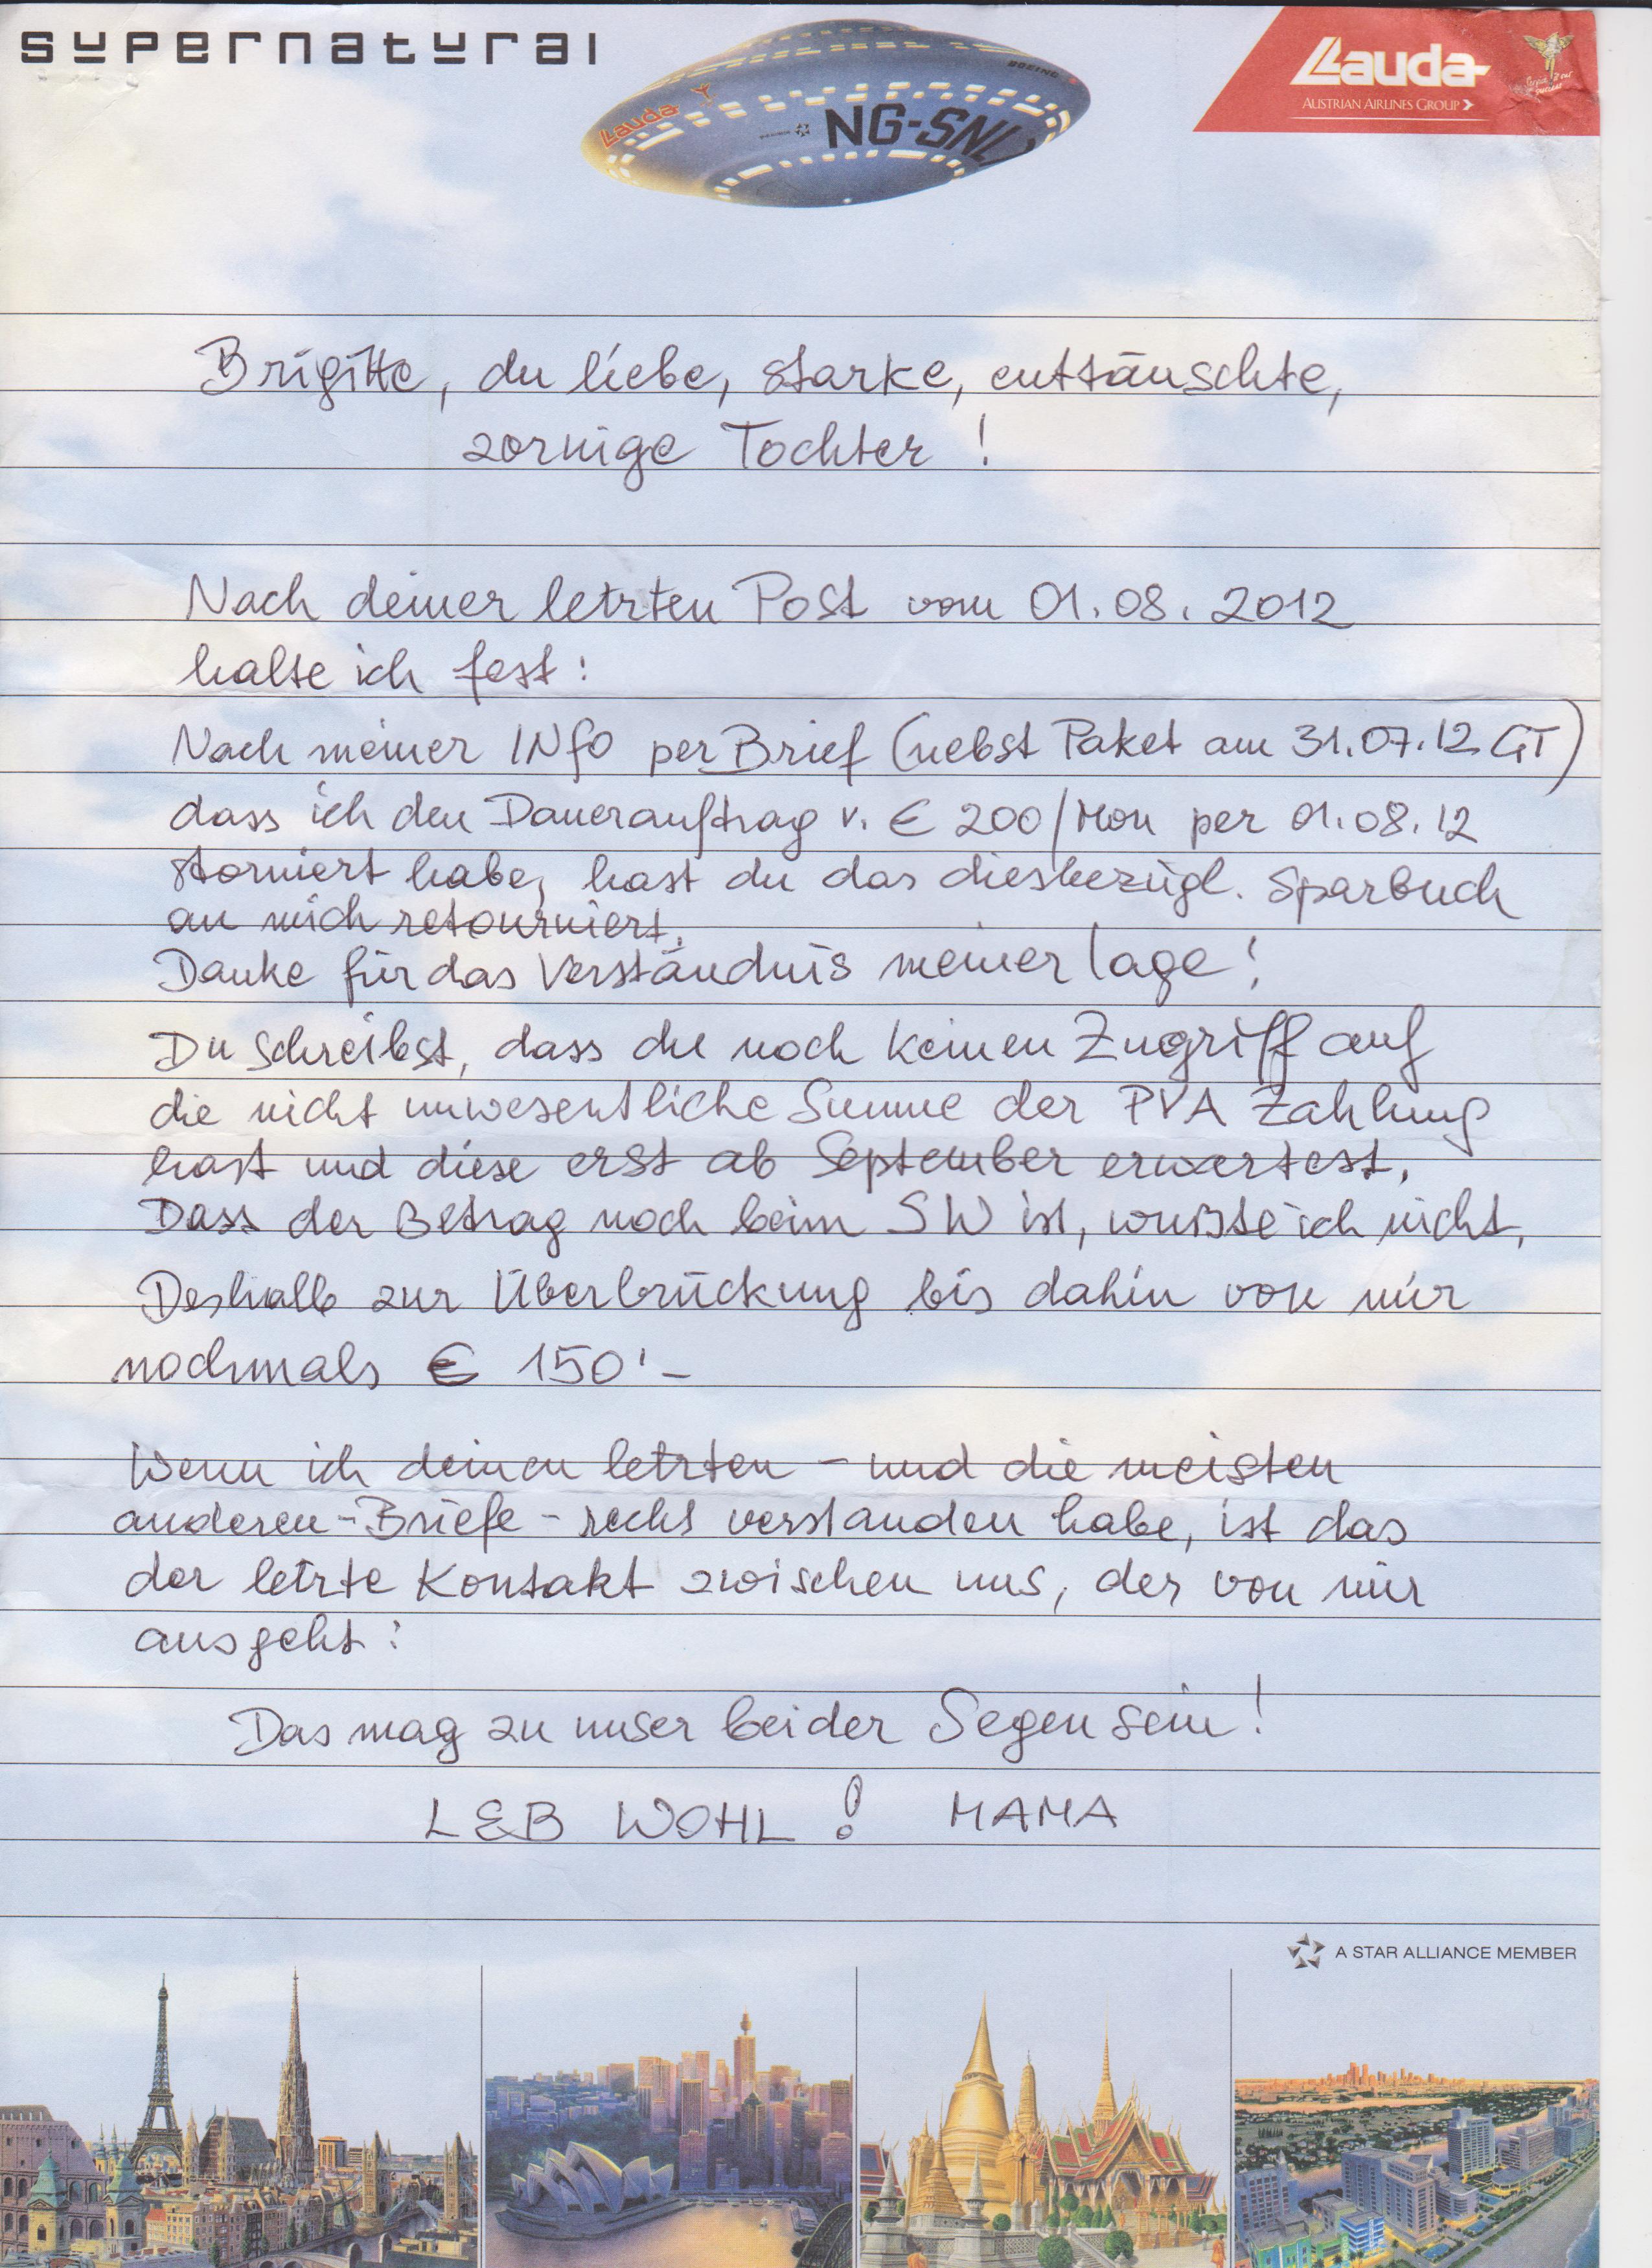 supernatural
Lauda
BOEING
NG-SNL
Lauda
AUSTRIAN AIRLINES GROUP
Brigitte, du liebe, starke, enttäuschte,
zornige Tochter!
Nach deiner letzten Post vom 01.08.2012
halte ich fest:
Nach meiner INfO per Brief (nebst Paket am 31.07.12 GT)
dass ich den Dauerauftrag v. € 200/Mon per 01.08.12
storniert habe, hast du das diesbezügl. Sparbuch
an mich retourniert.
Danke für das Verständnis meiner Lage!
Du schreibst, dass du noch keinen Zugriff auf
die nicht unwesentliche Summe der PVA Zahlung
hast und diese erst ab September erwartest.
Dass der Betrag noch beim SW ist, wußte ich nicht.
Deshalb zur Überbrückung bis dahin von mir
nochmals € 150'-
Wenn ich deinen letzten - und die meisten
anderen - Briefe - recht verstanden habe, ist das
der letzte Kontakt zwischen uns, der von mir
ausgeht:
Das mag zu unser beider Segen sein!
LEB WOHL! MAMA
A STAR ALLIANCE MEMBER